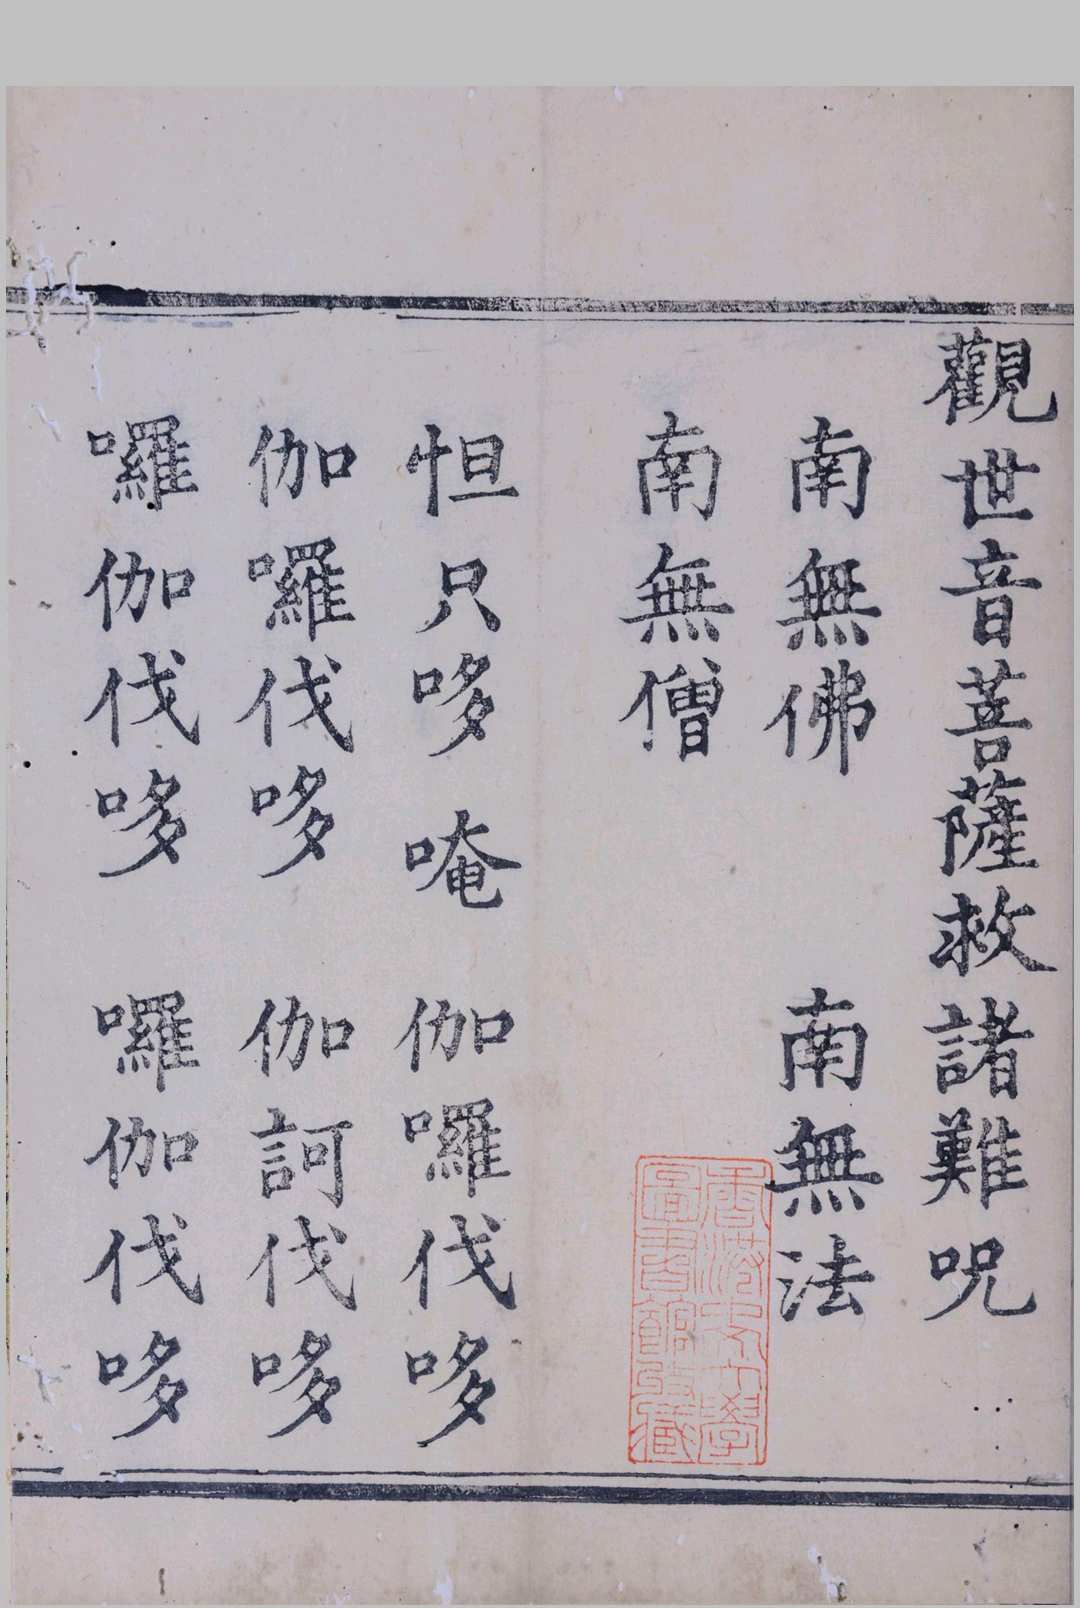 觀世音菩薩救諸難呪
南無佛　南無法
南無僧
怛只哆　唵　伽囉伐哆
伽囉伐哆　伽訶伐哆
囉伽伐哆　囉伽伐哆
香港大學
圖書館珍藏